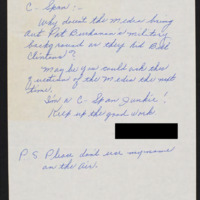 C-Span:-
Why dosnt the Media bring
out Pat Buchanan's military
background as they did Bill
Clintons?
May be you could ask this
question of the Media the next
time.
I'm a C-Span Junkie!
Keep up the good work.
P.S. Please dont use my name
on the air.